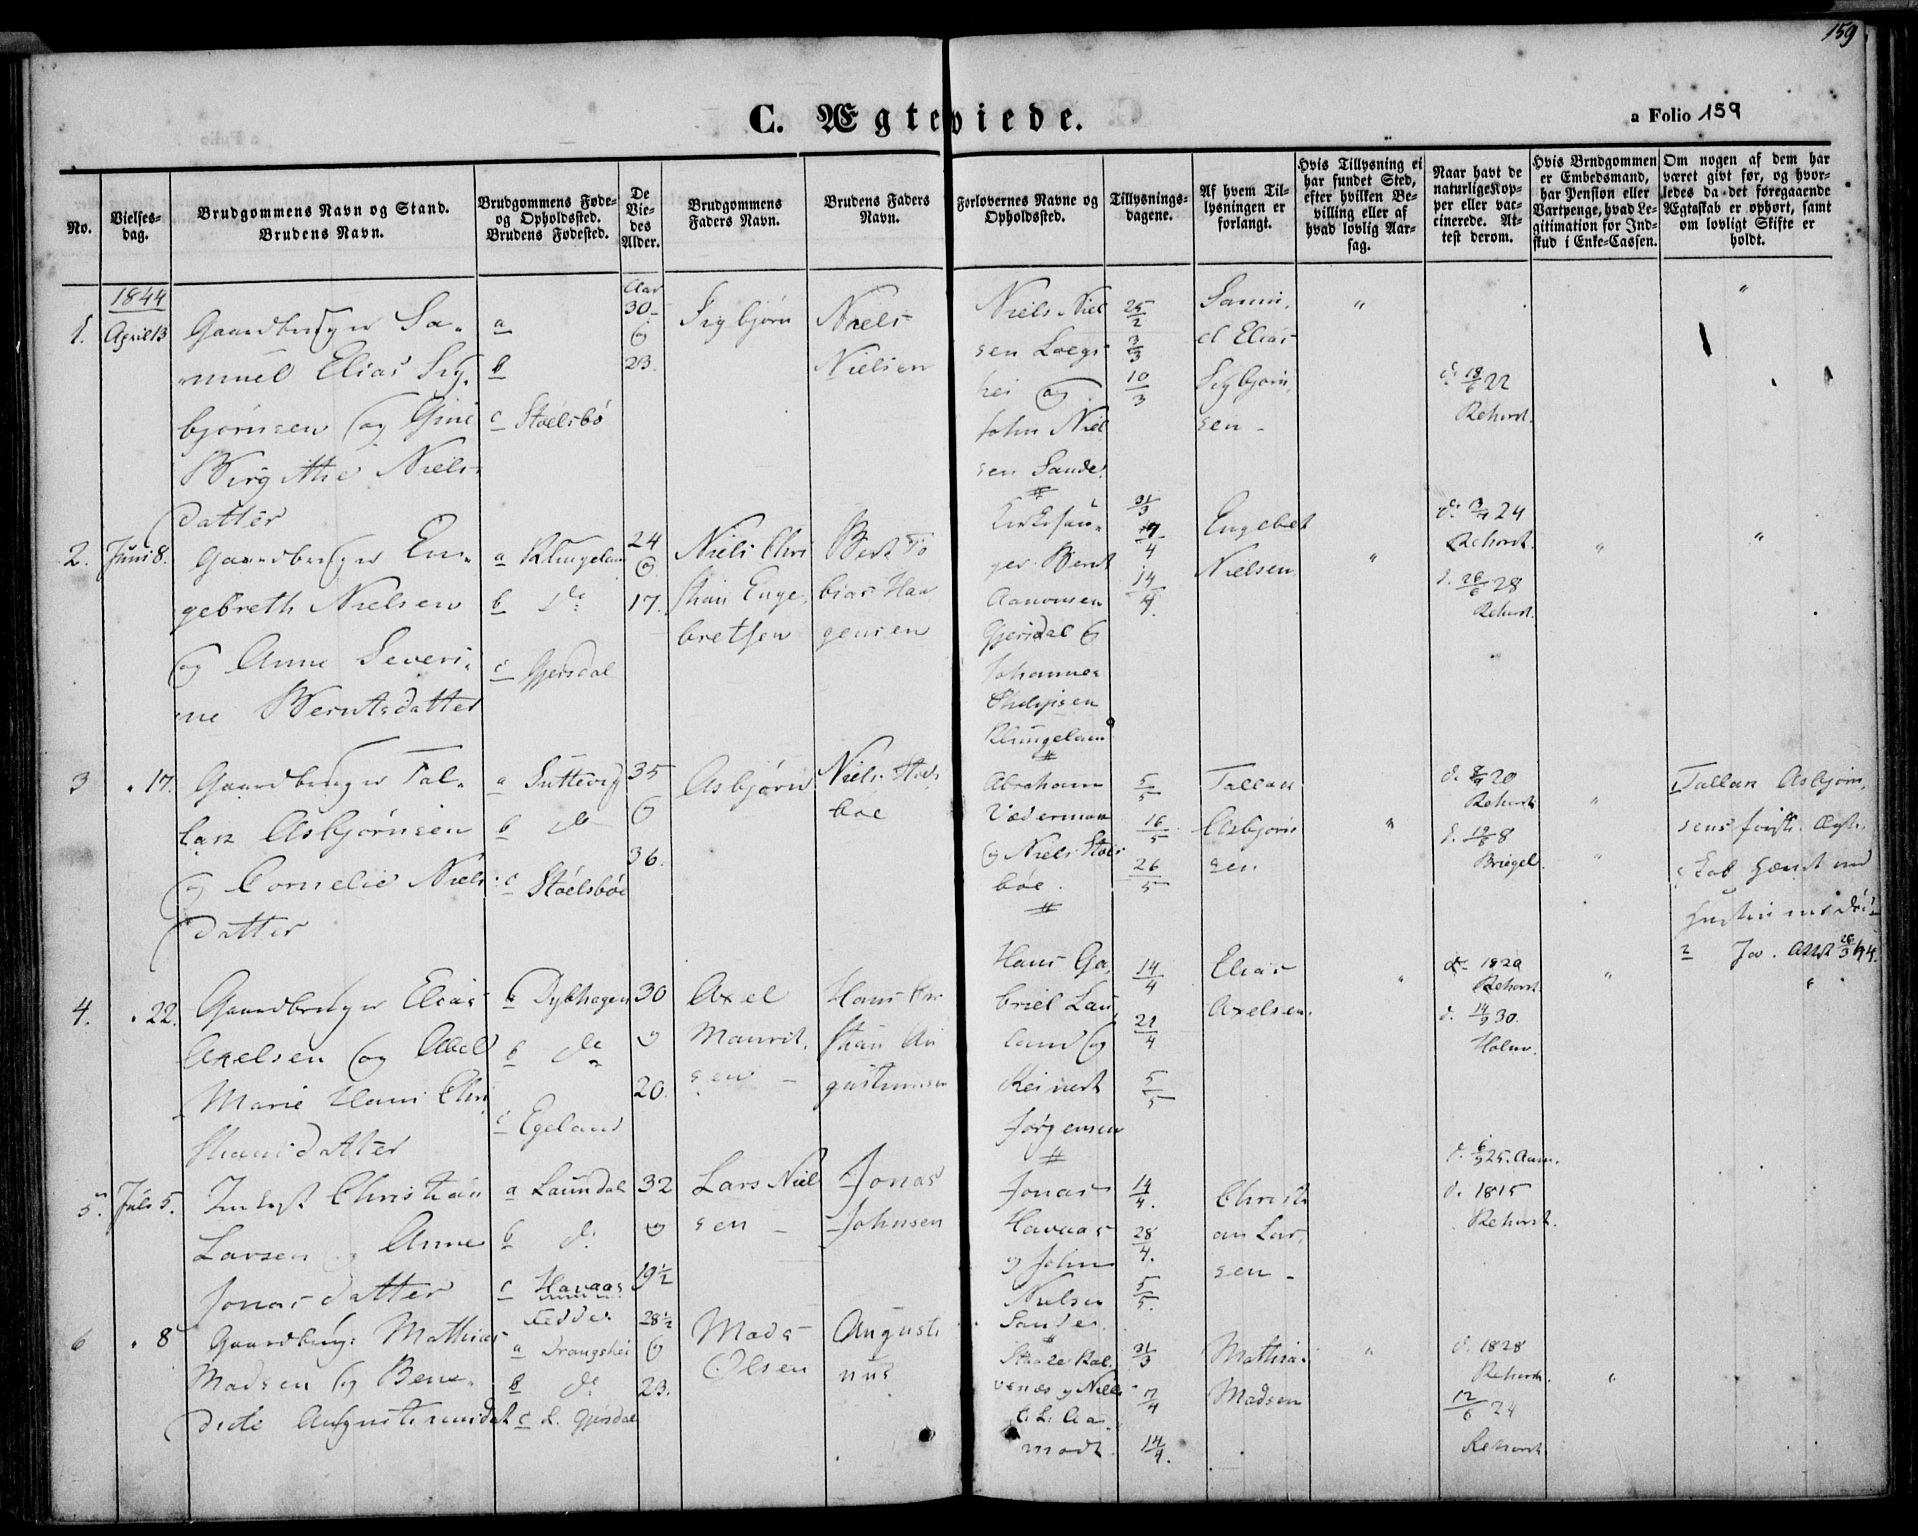 159
C. Ægteviede.
a Folio 159
No.
Vielses-
dag.
Brudgommens Navn og Stand.
Brudens Navn.
Brudgommens Føde-
og Opholdssted.
Brudens Fødested.
De
Vie-
des
Alder.
Brudgommens
Faders Navn.
Brudens Faders
Navn.
Forlovernes Navne og
Opholdssted.
Tillysnings-
dagene.
Af hvem Til-
lysningen er
forlangt.
Hvis Tillysning ei
har fundet Sted,
efter hvilken Be-
villing eller af
hvad lovlig Aar-
sag.
Naar havt de
naturlige Kop-
per eller vac-
cinerede. At-
test derom.
Hvis Brudgommen
er Embedsmand,
har Pension eller
Vartpenge, hvad Le-
gitimation for Ind-
skud i Enke-Cassen.
Om nogen af dem har
været gift før, og hvor-
ledes da det foregaaende
Ægteskab er ophørt, samt
om lovligt Skifte er
holdt.
1844
1. April 13
Gaardbruger Sa-
muel Elias Sig-
bjørnsen og Gine
Birgitthe Niels-
datter
a
b
c Stoelsbø
Aar
30
og
23.
Sigbjørn
Niels
Nielsen
Niels Niel
sen Loegs
hei og
John Niel
sen Sande
25/2
3/3
10/3
Samu-
el Elias
Sigbjørn-
sen
"
d. 18/6 22
Rehorst.
"
2. Juni 8.
Gaardbruger En-
gebreth Nielsen
og Anne Severi-
ne Berntsdatter
a Klungeland
b do
c Gjersdal
24
og
17.
Niels Chri
stian Enge
bretsen
Bert To
bias Haa
gensen
Kirkesan-
ger Bernt
Aanonsen
Gjersdal og
Johannes
Klungeland
31/3
7/4
14/4
Engebret
Nielsen
"
24
Rehorst.
d. 26/6 28
Rehorst.
"
"
3 " 17.
Gaardbruger Tal-
lak Asbjørnsen
og Cornelie Niels-
datter
a
b do
c Stoelsbøe
35
og
36.
Asbjørn
Niels Stoels
bøe
Abraham
og Niels Stoels
bøe.
5/5
16/5
26/5
Tallak
Asbjørn
sen
"
20
Rehorst
8
Briegel.
"
Tallak Asbjørn-
sens første Ægte-
Attst 26/3 44.
4. " 22.
Gaardbruger Elias
Axelsen og Abel
Marie Hans Chri
stiansdatter
a Dybhagen
b do
c Egeland
30
og
20.
Axel
Maurit-
sen
Hans Kri
stian Au
gustinussen
Hans Ga-
briel Lau
land og
Reinert
Jørgensen
14/4
21/4
5/5
Elias
Axelsen.
"
1820
Rehorst.
d. 14/9 30.
Holm.
"
"
5. Juli 5.
Inderst Christian
Larsen og Anne
Jonasdatter
a Laundal
b do
c Havaas
32
og
19½
Lars Niel
sen
Jonas
Johnsen
Jonas
Havaas
og John
Nielsen
Sande.
14/4.
28/4.
5/5.
Christi
an Lar-
sen
d. 6/9 25. Aam.
d. 1815
Rehorst.
6 " 8
Gaardbrug: Mathias
Madsen og Bene-
dicte Augustinusdat
Fedde.
a Drangshei
b do
c L. Gjersdal
28½
og
23.
Mads
Olsen
Augusti
nus
Staale Røi-
venæs og Niels
modt.
31/3
7/4
14/4.
Mathias
Madsen
"
d. 1828
Rehorst.
12/6 24
Rehorst
"